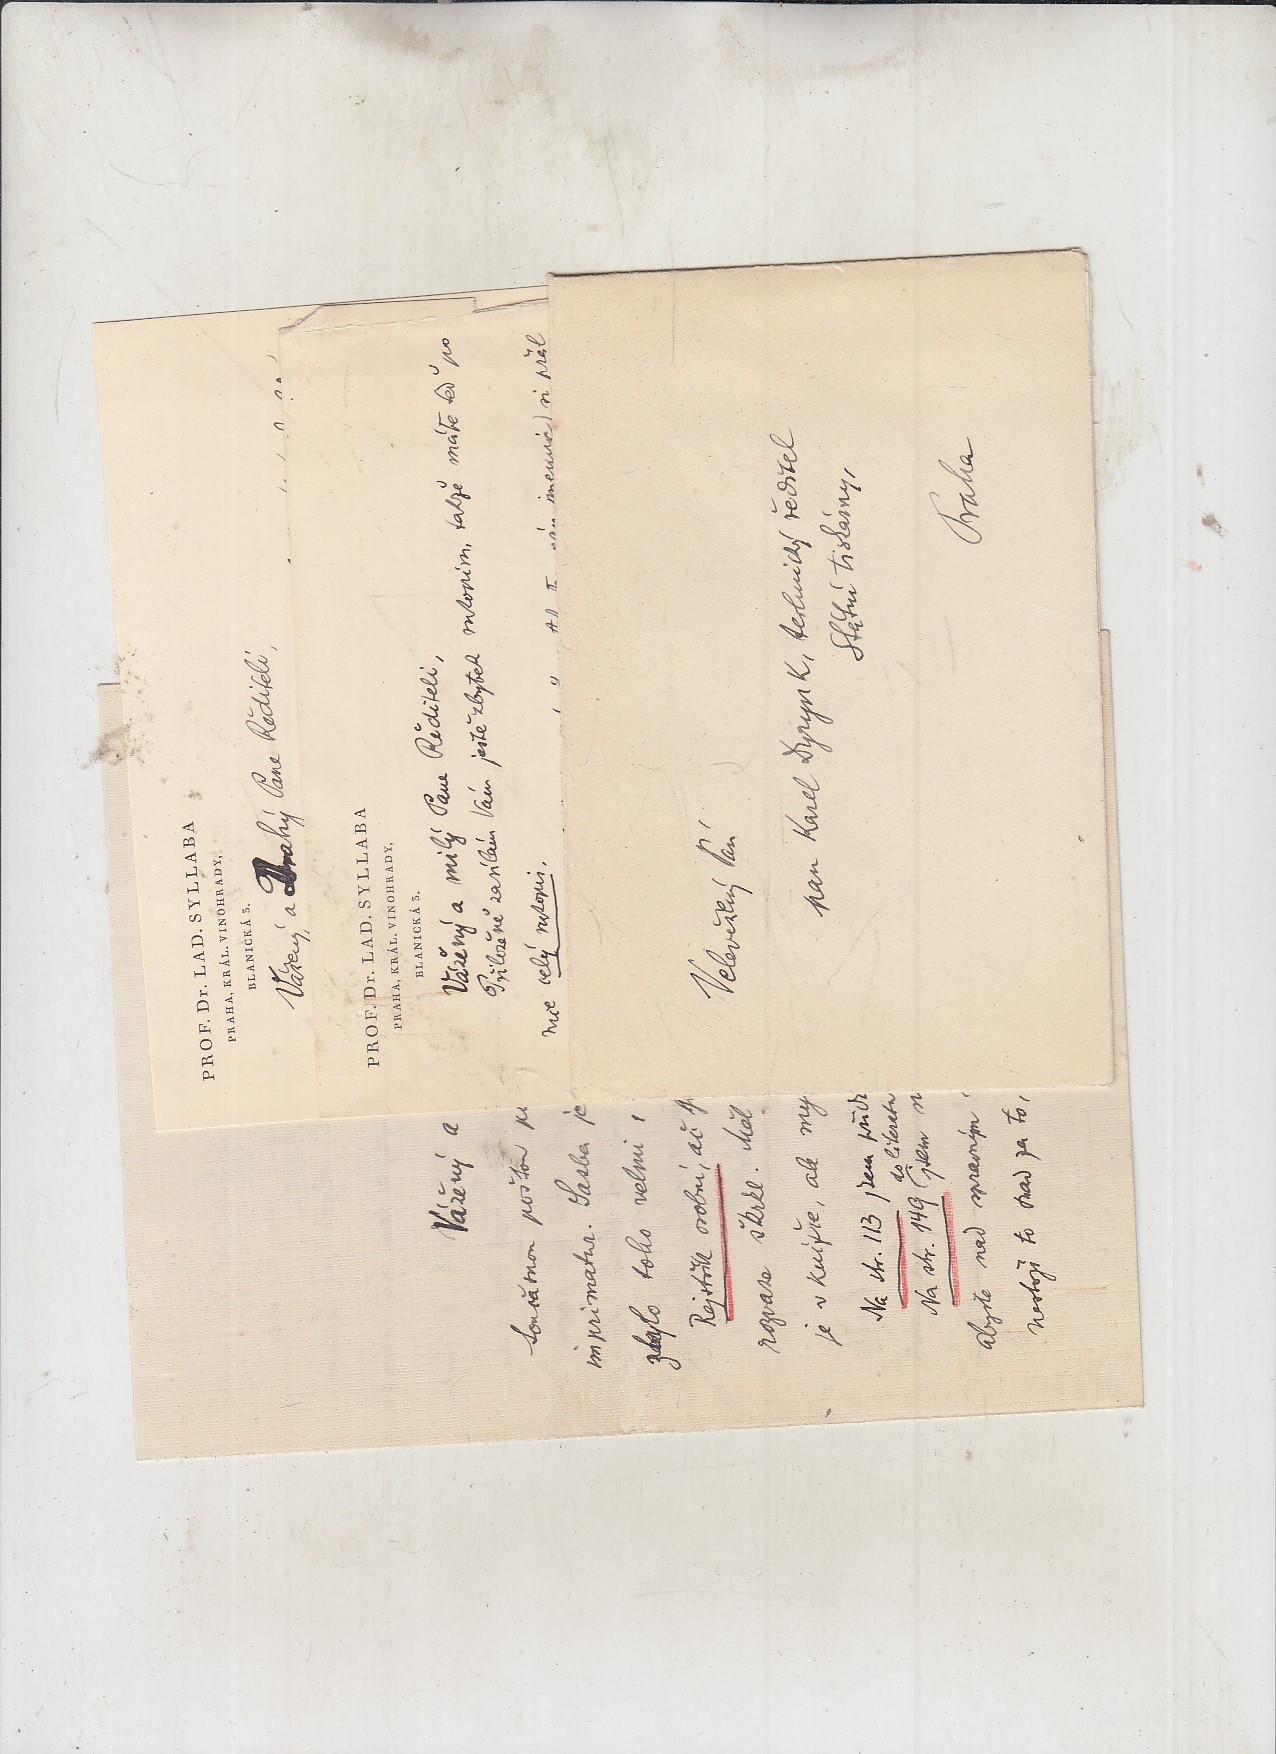 PROF. Dr. LAD. SYLLABA
PRAHA, KRÁL. VINOHRADY,
BLANICKÁ 5.
Vážený a Drahý Pane Řediteli,
PROF. Dr. LAD. SYLLABA
PRAHA, KRÁL. VINOHRADY,
BLANICKÁ 5.
Vážený a milý Pane Řediteli,
Přiloženě zasílám Vám ještě zbytek rukopisu, takže máte teď po
mně celý rukopis.
si přál
Velevážený Pán
pan Karel Dyrynk, technický ředitel
Státní tiskárny,
Praha
Vážený a
Současnou poštou
imprimatur. Sazba je
zbylo toho velmi
Rejstřík osobní, ač
rozvaze škrtl. Měl
je v knize, ale my
Na str. 113 jsem
do literatu
Na str. 149 jsem
abyste nad správným
nestojí to snad za to,